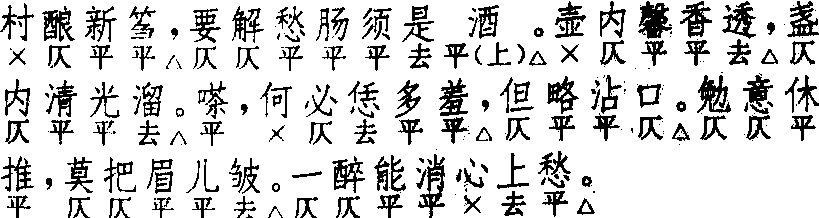 村酿新篘,要解愁肠须是 酒 。壶内馨香透,盏
× 仄 平 平 △ 仄 仄 平 平 平 去 平(上)△ × 仄 平 平 去 △ 仄
内清光溜。嗏,何必恁多羞,但略沾口。勉意休
仄 平 平 去 △ 平 × 仄 去 平 平 △ 仄 平 平 仄 △ 仄 仄 平
推,莫把眉儿皱。一醉能消心上愁。
平 仄 仄 平 平 去 △ 仄 仄 平 平 × 去 平 △